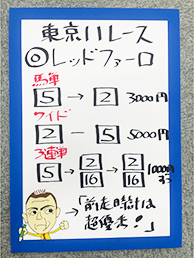 東京11レース
◎レッドファーロ
馬単
5 → 2 3000円
ワイド
2 − 5 5000円
3連単
5 → 2 16 → 2 16 1000円ずつ
→「前走時計は
超優秀!」